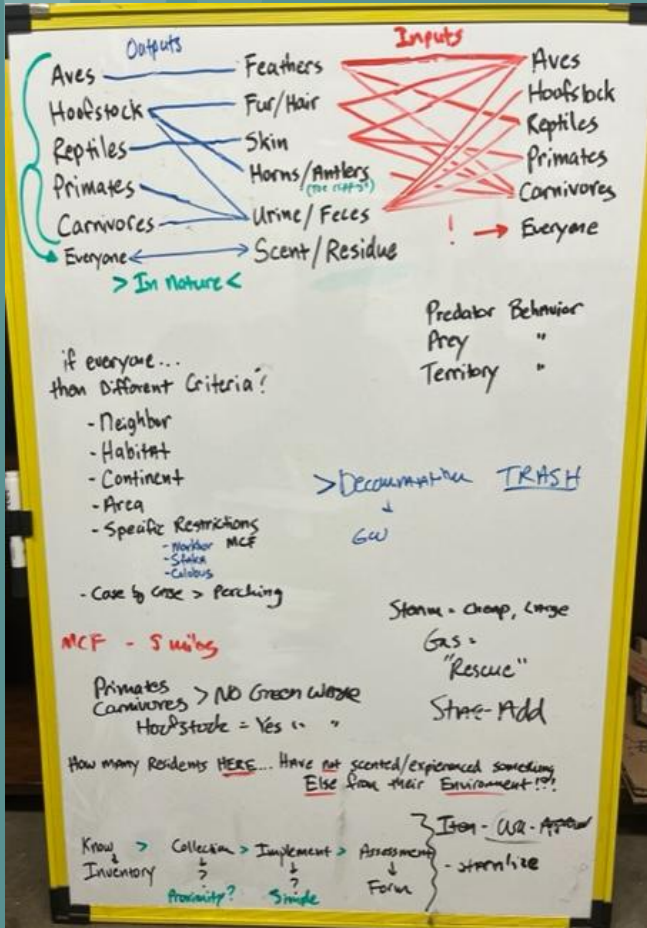 Outputs
Inputs
Aves
Hoofstock
Reptiles
Primates
Carnivores
Everyone
> In nature <
Feathers
Fur/Hair
Skin
Horns/Antlers
Urine/Feces
Scent/Residue
Aves
Hoofstock
Reptiles
Primates
Carnivores
! → Everyone
Predator Behavior
Prey "
Territory "
if everyone...
then Different Criteria?
- Neighbor
- Habitat
- Continent
- Area
- Specific Restrictions
MCF
- Colobus
- Case by case > Perching
> TRASH
↓
GW
MCF - 5 miles
Steam = Cheap, Large
Gas =
"Rescue"
Add
Primates
Carnivores > NO Green Waste
Hoofstock = Yes " "
How many Residents HERE... Have not scented/experienced something
Else from their Environment!?!
Know > Collection > Implement > Assessment
Inventory ? ? Form
Proximity? Simple
Item -
- sterilize